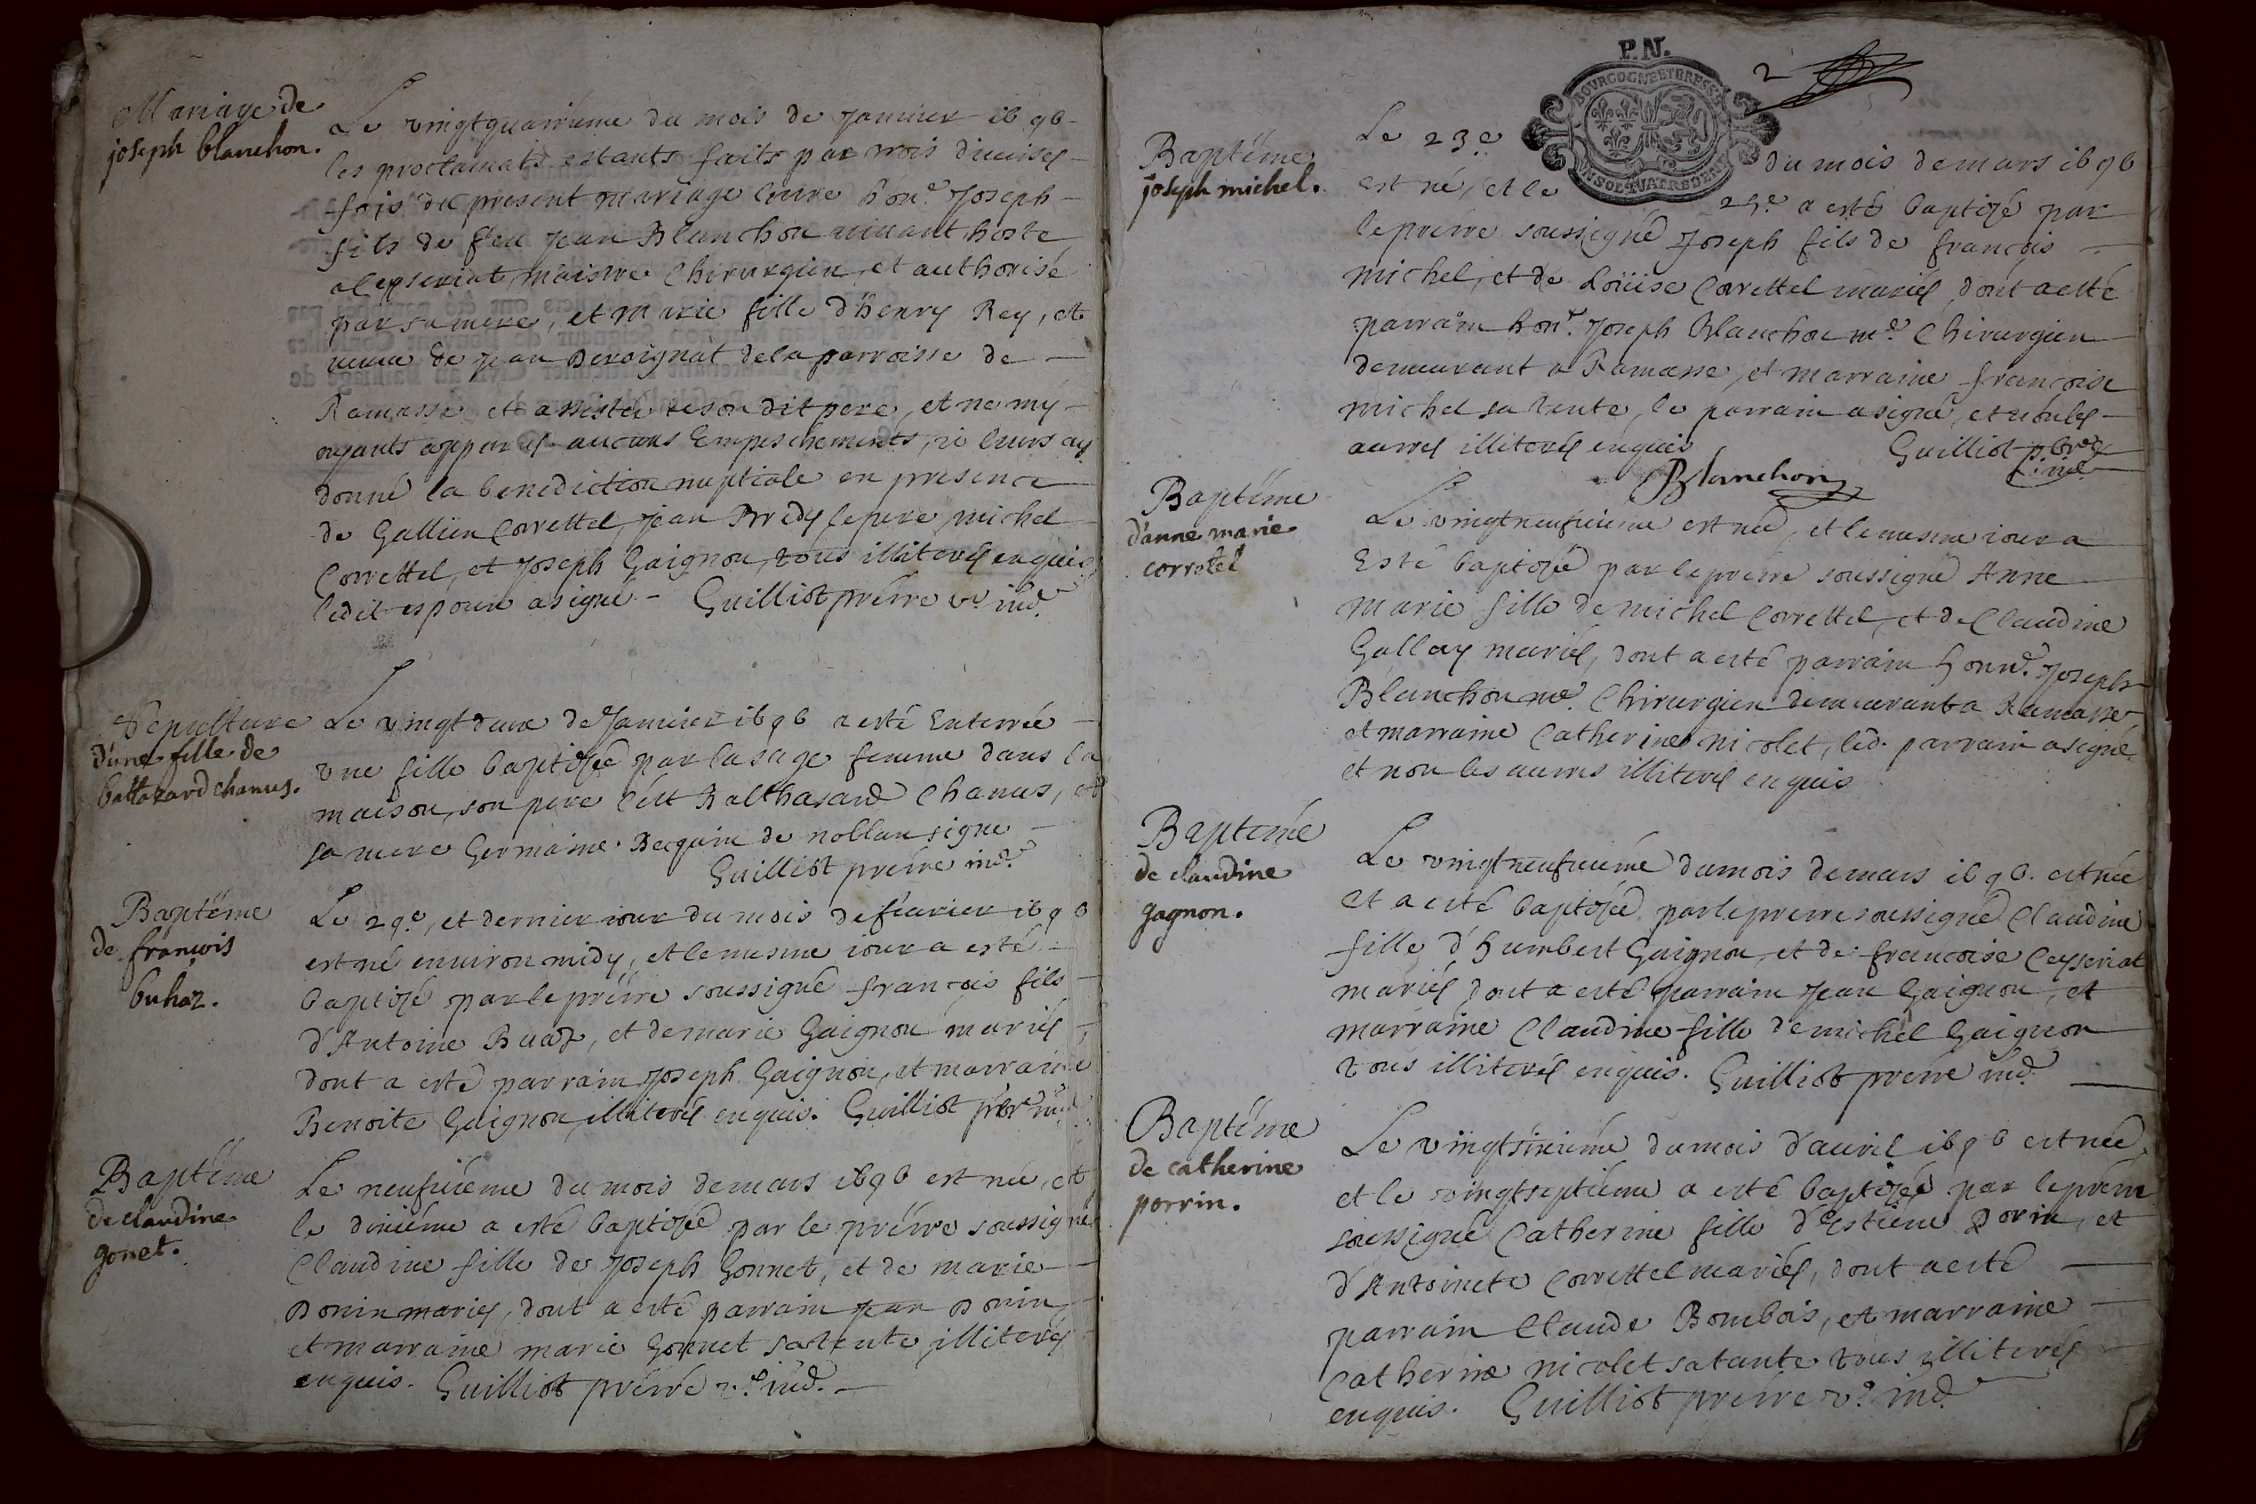 Mariage de
joseph blanchon.
Le vingtquatrieme du mois de Janvier 1696
les proclamats estants faits par trois diverses
fois du present mariage entre hon.e Joseph
fils de feu Jean Blanchon vivant hoste
a Ceyseriat, maistre Chirurgien et authorisé
par sa mere, et Marie fille d'henry Rey, et
veuve de Jean Deroignat de la parroisse de
Ramasse et assistée de son dit pere, et ne m'y
oyants apparus aucuns Empeschements, je leurs ay
donné la benediction nuptiale en presence
de Gallien Correttel, Jean Bredy le pere michel
Correttel, et Joseph Gaignon, tous illiterés enquis
ledit espoux a signé. Guilliot prêtre v.e ind.
Sepulture
d'une fille de
baltazard chanus.
Le vingtdeux de Janvier 1696 a esté Enterrée
une fille baptizée par la sage femme dans la
maison, son pere c'est Balthasard Chanus, et
sa mere Germaine Becquin de noblan signe
Guilliot prêtre ind.
Baptême
de françois
buhaz.
Le 29.e, et dernier iour du mois de fevrier 1696
est né environ midy, et le mesme iour a esté
baptizé par le prêtre soussigné françois fils
d'Antoine Buaz, et de marie Gaignon mariés
dont a esté parrain Joseph Gaignon, et marraine
Benoite Gaignon, illiterés enquis. Guilliot pbre ind.
Baptême
de claudine
gonet.
Le neufvieme du mois de mars 1696 est née, et
le dixiéme a esté baptizée par le prêtre soussigné
Claudine fille de Joseph Gonnet, et de marie
Donin mariés, dont a esté parrain Jean Donin
et marraine marie Gonnet sa tente, illiterés
enquis. Guilliot prêtre v.e ind.
P.N.
BOURGOGNE ET BRESSE
UN SOL QUATRE DEN
2
Baptême
joseph michel.
Le 23.e du mois de mars 1696
est né, et le 25.e a esté baptizé par
le prêtre soussigné Joseph fils de françois
michel, et de Loüise Correttel mariés, dont a esté
parrain hon.e Joseph Blanchon m.e Chirurgien
demeurant a Ramasse, et marraine françoise
michel sa tente, le parrain a signé, et non les
autres illiterés enquis Guilliot pbre
ind.
Blanchon
Baptême
d'anne marie
corretel
Le vingtneufvieme est née, et le mesme iour a
Esté baptizée par le prêtre soussigné Anne
marie fille de michel Correttel, et de Claudine
Gallay mariés, dont a esté parrain honn.e Joseph
Blanchon m.e Chirurgien demeurant a Ramasse,
et marraine Catherine nicolet, led. parrain a signé
et non les autres illiterés enquis
Baptême
de claudine
gagnon.
Le vingtneufvieme du mois de mars 1696. est née
et a esté baptizée par le prêtre soussigné Claudine
fille d'humbert Gaignon, et de françoise Ceysseriat
mariés, dont a esté parrain Jean Gaignon, et
marraine Claudine fille de michel Gaignon
tous illiterés enquis. Guilliot prêtre ind.
Baptême
de catherine
porrin.
Le vingtsixiéme du mois d'avril 1696 est née
et le vingtseptieme a esté baptizée par le prêtre
soussigné Catherine fille d'Estiene Dorin, et
d'Antoinete Correttel mariés, dont a esté
parrain Claude Bombois, et marraine
Catherine nicolet sa tante tous illiterés
enquis. Guilliot prêtre v.e ind.